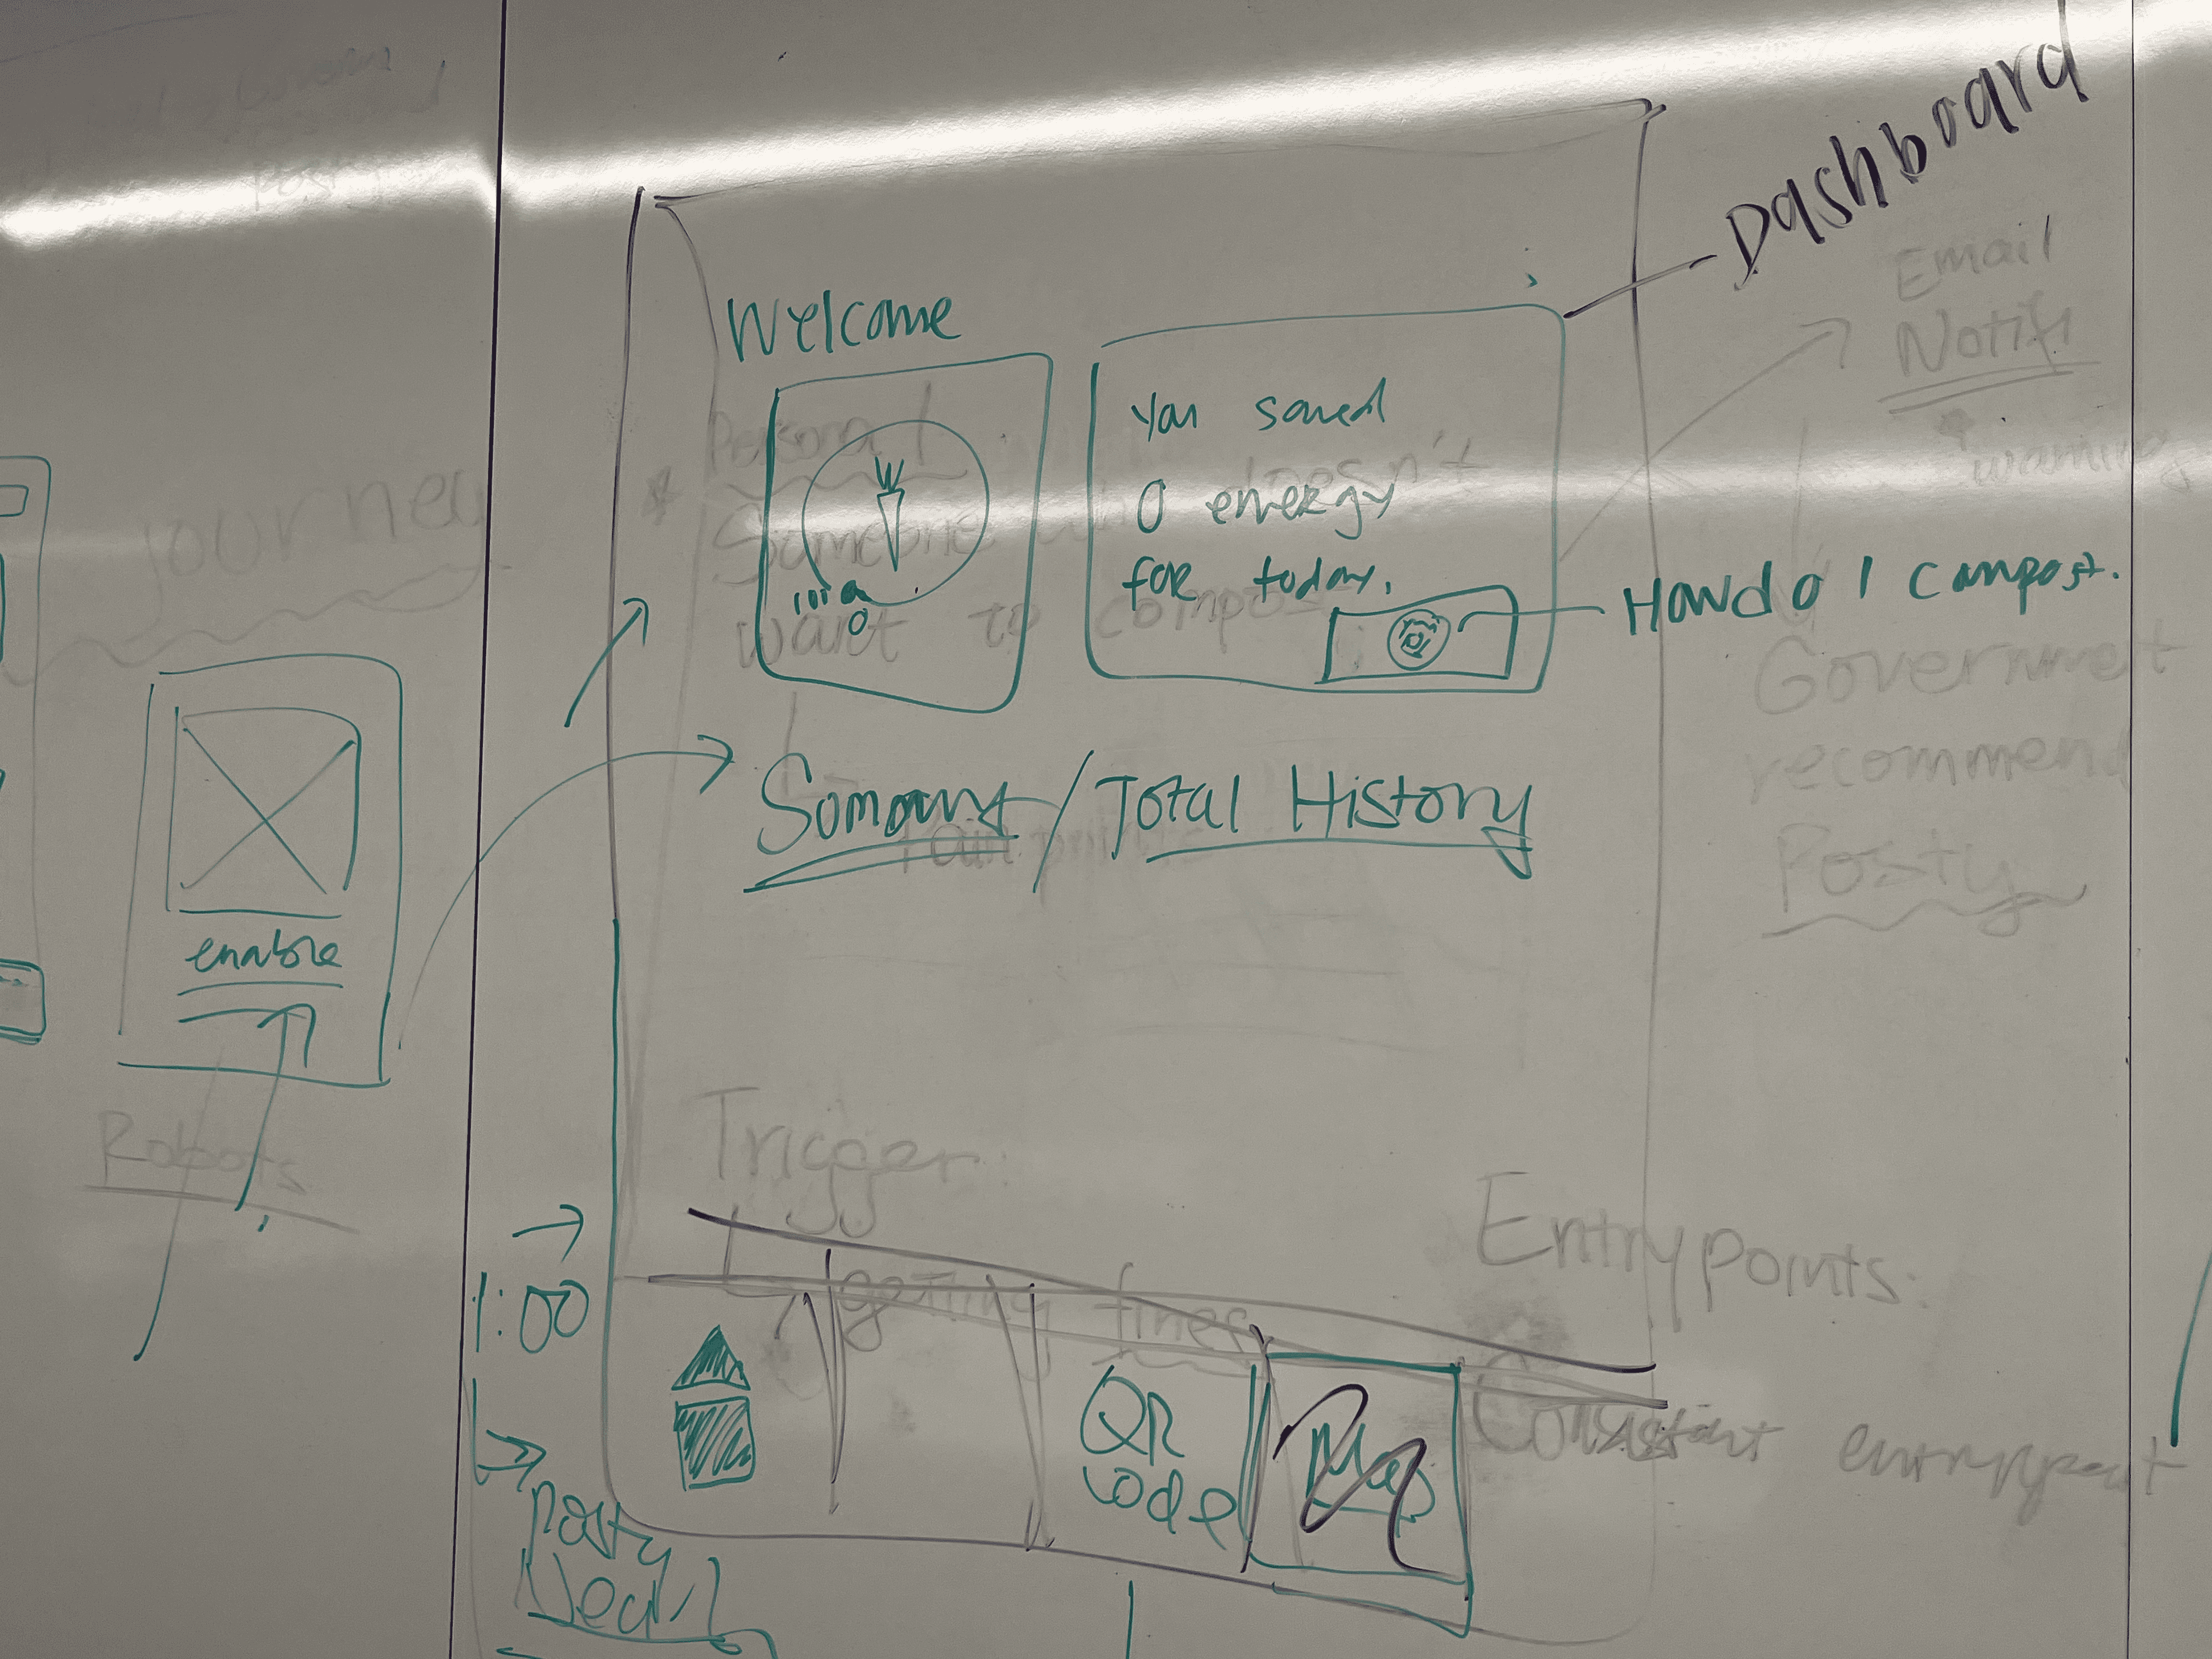 Dashboard
Email
Notify
warning
Welcome
Persona 1
Journey
You saved
0 energy
for today.
doesn't
Someone
want to compost
How do I compost.
Government
recommend
Posty
Summary / Total History
Pain points
enable
Robots
Trigger:
getting fines
Entry points:
Constant entrypoint
1:00
QR
code
Map
Posty